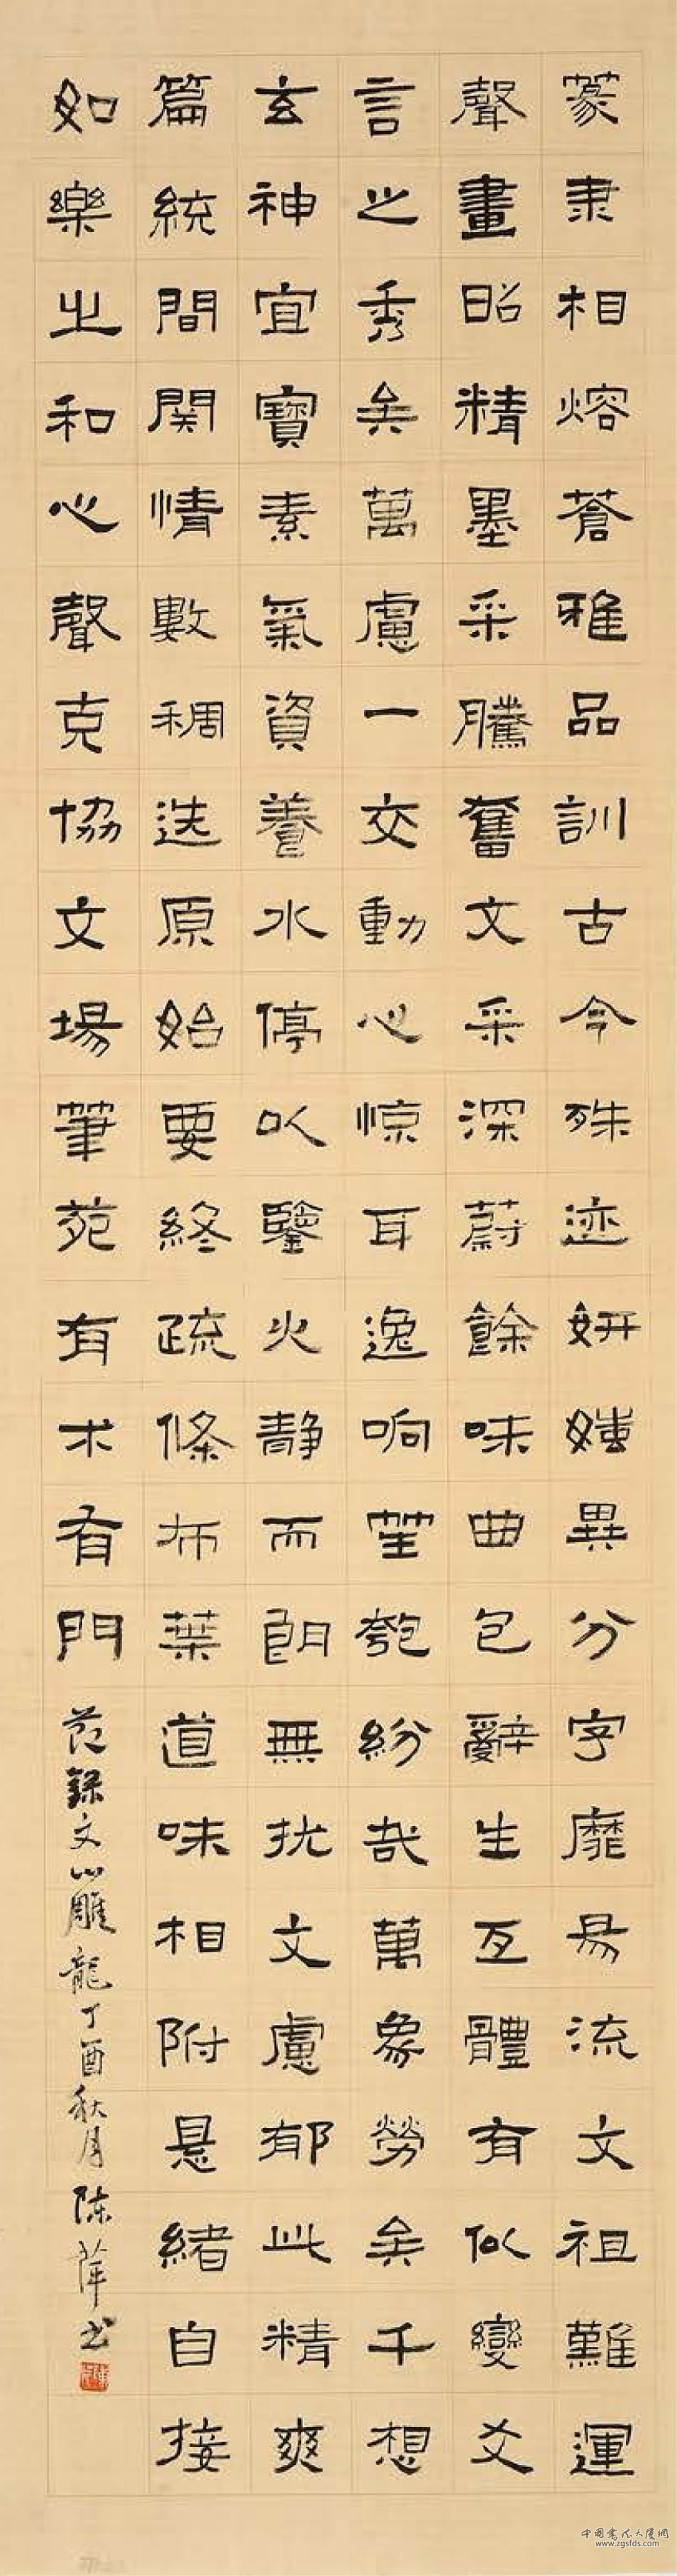 篆隶相熔蒼雅品訓古今殊迹妍媸異分字靡易流文祖難運
聲畫昭精墨采騰奮文采深蔚餘味曲包辭生互體有似變爻
言之秀矣萬慮一交動心惊耳逸响笙匏紛哉萬象勞矣千想
玄神宜寶素氣資養水停以鑒火静而朗無扰文慮郁此精爽
篇統間関情數稠迭原始要終疏條布葉道味相附懸緒自接
如樂之和心聲克協文場筆苑有术有門
節錄文心雕龍丁酉秋月陈萍书
中国書法大廈網
www.zgsfds.com